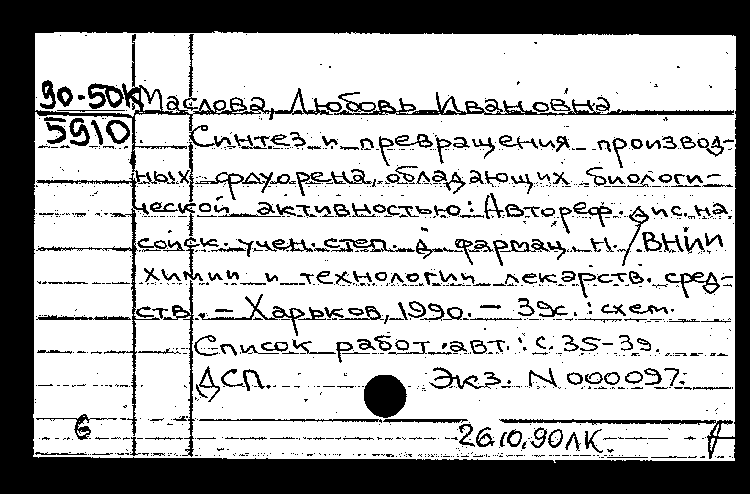 90-50К Маслова, Любовь Ивановна.
5910 Синтез и превращения производ-
ных флуорена, обладающих биологи-
ческой активностью: Автореф. дис. на
соиск. учен. степ. д. фармац. н. / ВНИИ
химии и технологии лекарств. сред-
ств. – Харьков, 1990. – 39с. : схем.
Список работ авт.: с. 35-39.
ДСП. Экз. N 000097.
6
26.10.90 ЛК.